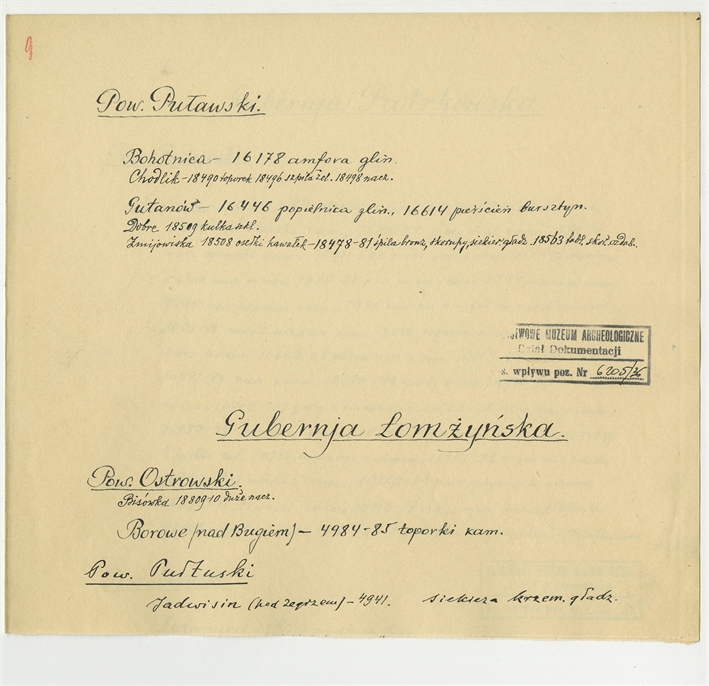 9
Pow. Puławski.
Bohotnica – 16178 amfora glin.
Chodlik – 18490 toporek 18496 szpila żel. 18498 nacz.
Gutanów – 16446 popielnica glin., 16614 pierścień bursztyn.
Dobre 18509 kulka szkl.
Żmijowiska 18508 osełki kawałek – 18478-81 śpila bronz, skorupy, siekier. gładz. 18563
PAŃSTWOWE MUZEUM ARCHEOLOGICZNE
Dział Dokumentacji
s. wpływu poz. Nr 6205/36
Gubernja Łomżyńska.
Pow. Ostrowski.
Bisówka 18809-10 duże nacz.
Borowe (nad Bugiem) – 4984-85 toporki kam.
Pow. Pułtuski
Jadwisin (pod Zegrzem) – 4941. siekiera krzem. gładz.